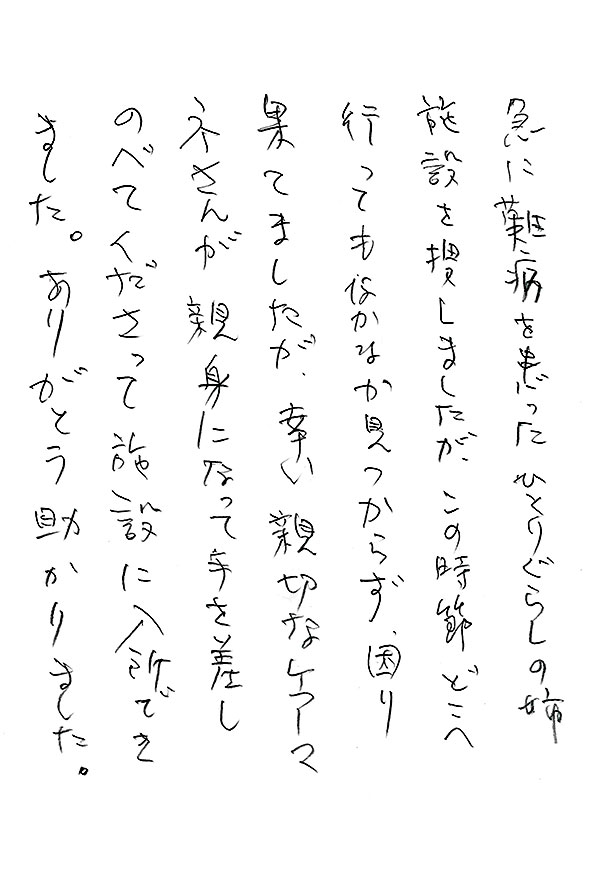 急に難病を患ったひとりぐらしの姉
施設を捜しましたが、この時節どこへ
行ってもなかなか見つからず、困り
果てましたが、幸い親切なケアーマ
ネさんが親身になって手を差し
のべてくださって施設に入所でき
ました。ありがとう助かりました。